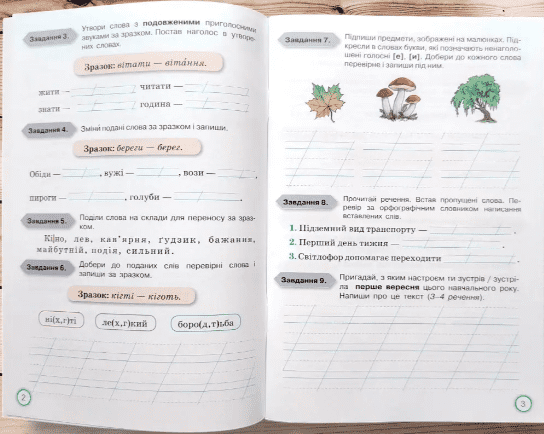 Завдання 3.
Утвори слова з подовженими приголосними
звуками за зразком. Постав наголос в утворе-
них словах.
Зразок: вітати — віта́ння.
жити — читати —
знати — година —
Завдання 4.
Зміни подані слова за зразком і запиши.
Зразок: береги — берег.
Обіди — , вужі — , вози — ,
пироги — , голуби — .
Завдання 5.
Поділи слова на склади для переносу за зраз-
ком.
лев, кав'ярня, ґудзик, бажання,
майбутній, подія, сильний.
Завдання 6.
Добери до поданих слів перевірні слова і
запиши за зразком.
Зразок: кігті — кіготь.
ні(х,г)ті ле(х,г)кий боро(д,т)ьба
2
Завдання 7.
Підпиши предмети, зображені на малюнках. Під-
кресли в словах букви, які позначають ненаголо-
шені голосні [е], [и]. Добери до кожного слова
перевірне і запиши під ним.
Завдання 8.
Прочитай речення. Встав пропущені слова. Пе-
ревір за орфографічним словником написання
вставлених слів.
1. Підземний вид транспорту — .
2. Перший день тижня — .
3. Світлофор допомагає переходити .
Завдання 9.
Пригадай, з яким настроєм ти зустрів / зустрі-
ла перше вересня цього навчального року.
Напиши про це текст (3–4 речення).
3